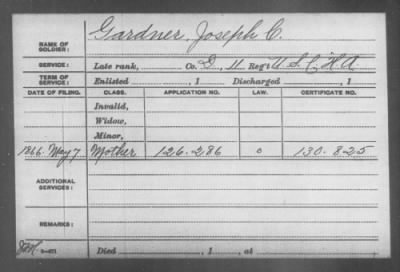 Gardner, Joseph C.
NAME OF SOLDIER:
SERVICE: Late rank, Co. G, 11 Reg't U.S.C.H.A
TERM OF SERVICE: Enlisted , 1 Discharged , 1
DATE OF FILING. CLASS. APPLICATION NO. LAW. CERTIFICATE NO.
Invalid,
Widow,
Minor,
1866 May 7 Mother 126.286 130.825
ADDITIONAL SERVICES:
REMARKS:
Died , 1 , at